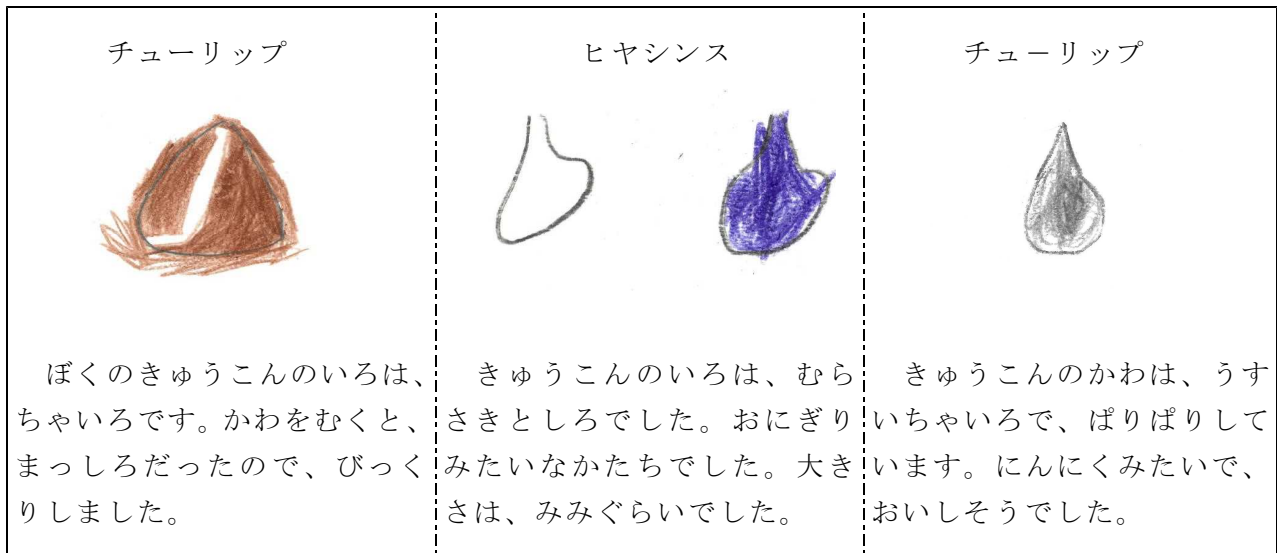 チューリップ
ぼくのきゅうこんのいろは、
ちゃいろです。かわをむくと、
まっしろだったので、びっく
りしました。
ヒヤシンス
きゅうこんのいろは、むら
さきとしろでした。おにぎり
みたいなかたちでした。大き
さは、みみぐらいでした。
チュ－リップ
きゅうこんのかわは、うす
いちゃいろで、ぱりぱりして
います。にんにくみたいで、
おいしそうでした。